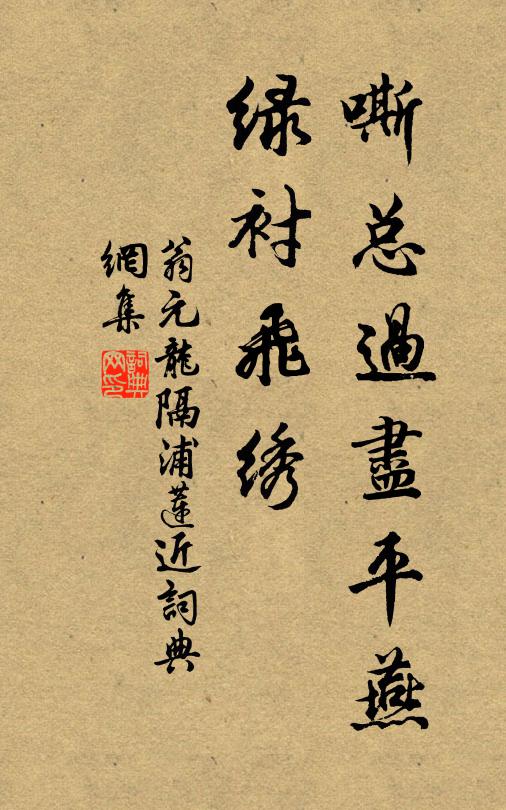 嘶总過盡平燕
绿衬飛绣
翁元龍隔浦蓮近詞典
網集
詞典
网印